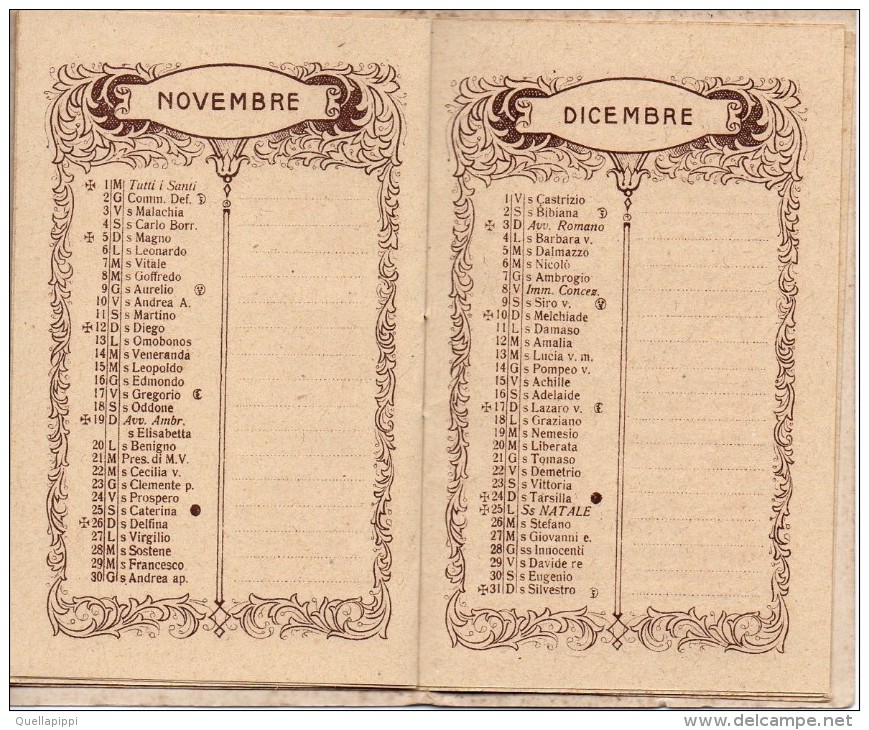 NOVEMBRE
✠ 1 M Tutti i Santi
2 G Comm. Def.
3 V s Malachia
4 S s Carlo Borr.
✠ 5 D s Magno
6 L s Leonardo
7 M s Vitale
8 M s Goffredo
9 G s Aurelio
10 V s Andrea A.
11 S s Martino
✠ 12 D s Diego
13 L s Omobonos
14 M s Veneranda
15 M s Leopoldo
16 G s Edmondo
17 V s Gregorio
18 S s Oddone
✠ 19 D Avv. Ambr.
s Elisabetta
20 L s Benigno
21 M Pres. di M.V.
22 M s Cecilia v.
23 G s Clemente p.
24 V s Prospero
25 S s Caterina
✠ 26 D s Delfina
27 L s Virgilio
28 M s Sostene
29 M s Francesco
30 G s Andrea ap.
DICEMBRE
1 V s Castrizio
2 S s Bibiana
✠ 3 D Avv. Romano
4 L s Barbara v.
5 M s Dalmazzo
6 M s Nicolò
7 G s Ambrogio
8 V Imm. Concez.
9 S s Siro v.
✠ 10 D s Melchiade
11 L s Damaso
12 M s Amalia
13 M s Lucia v. m.
14 G s Pompeo v.
15 V s Achille
16 S s Adelaide
✠ 17 D s Lazaro v.
18 L s Graziano
19 M s Nemesio
20 M s Liberata
21 G s Tomaso
22 V s Demetrio
23 S s Vittoria
✠ 24 D s Tarsilla
✠ 25 L Ss NATALE
26 M s Stefano
27 M s Giovanni e.
28 G ss Innocenti
29 V s Davide re
30 S s Eugenio
✠ 31 D s Silvestro
Quellapippi
DELCAMPE.NET